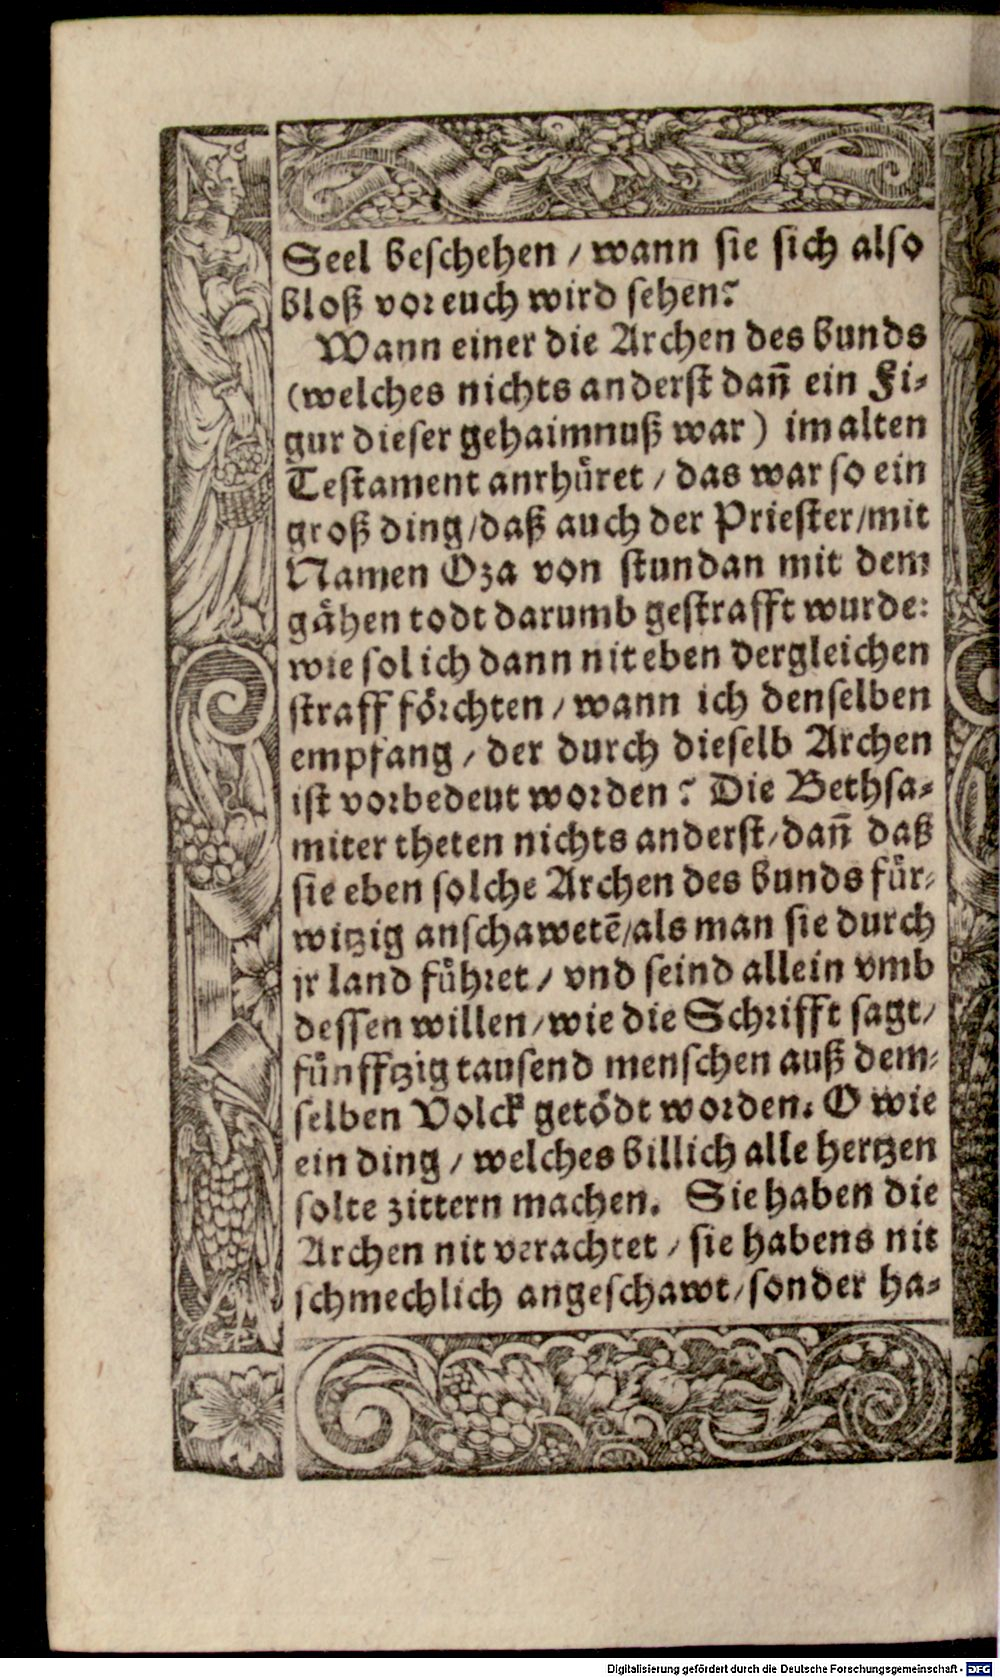 Seel beschehen / wann sie sich also
bloß vor euch wird sehen?
Wann einer die Archen des bunds
(welches nichts anderst dañ ein Fi-
gur dieser gehaimnuß war) im alten
Testament anrhüret / das war so ein
groß ding / daß auch der Priester / mit
Namen Oza von stundan mit dem
gähen todt darumb gestrafft wurde:
wie sol ich dann nit eben dergleichen
straff förchten / wann ich denselben
empfang / der durch dieselb Archen
ist vorbedeut worden? Die Bethsa-
miter theten nichts anderst / dañ daß
sie eben solche Archen des bunds für-
witzig anschawetẽ / als man sie durch
jr land führet / vnd seind allein vmb
dessen willen / wie die Schrifft sagt /
fünfftzig tausend menschen auß dem-
selben Volck getödt worden. O wie
ein ding / welches billich alle hertzen
solte zittern machen. Sie haben die
Archen nit verachtet / sie habens nit
schmechlich angeschawt / sonder ha-
Digitalisierung gefördert durch die Deutsche Forschungsgemeinschaft - DFG